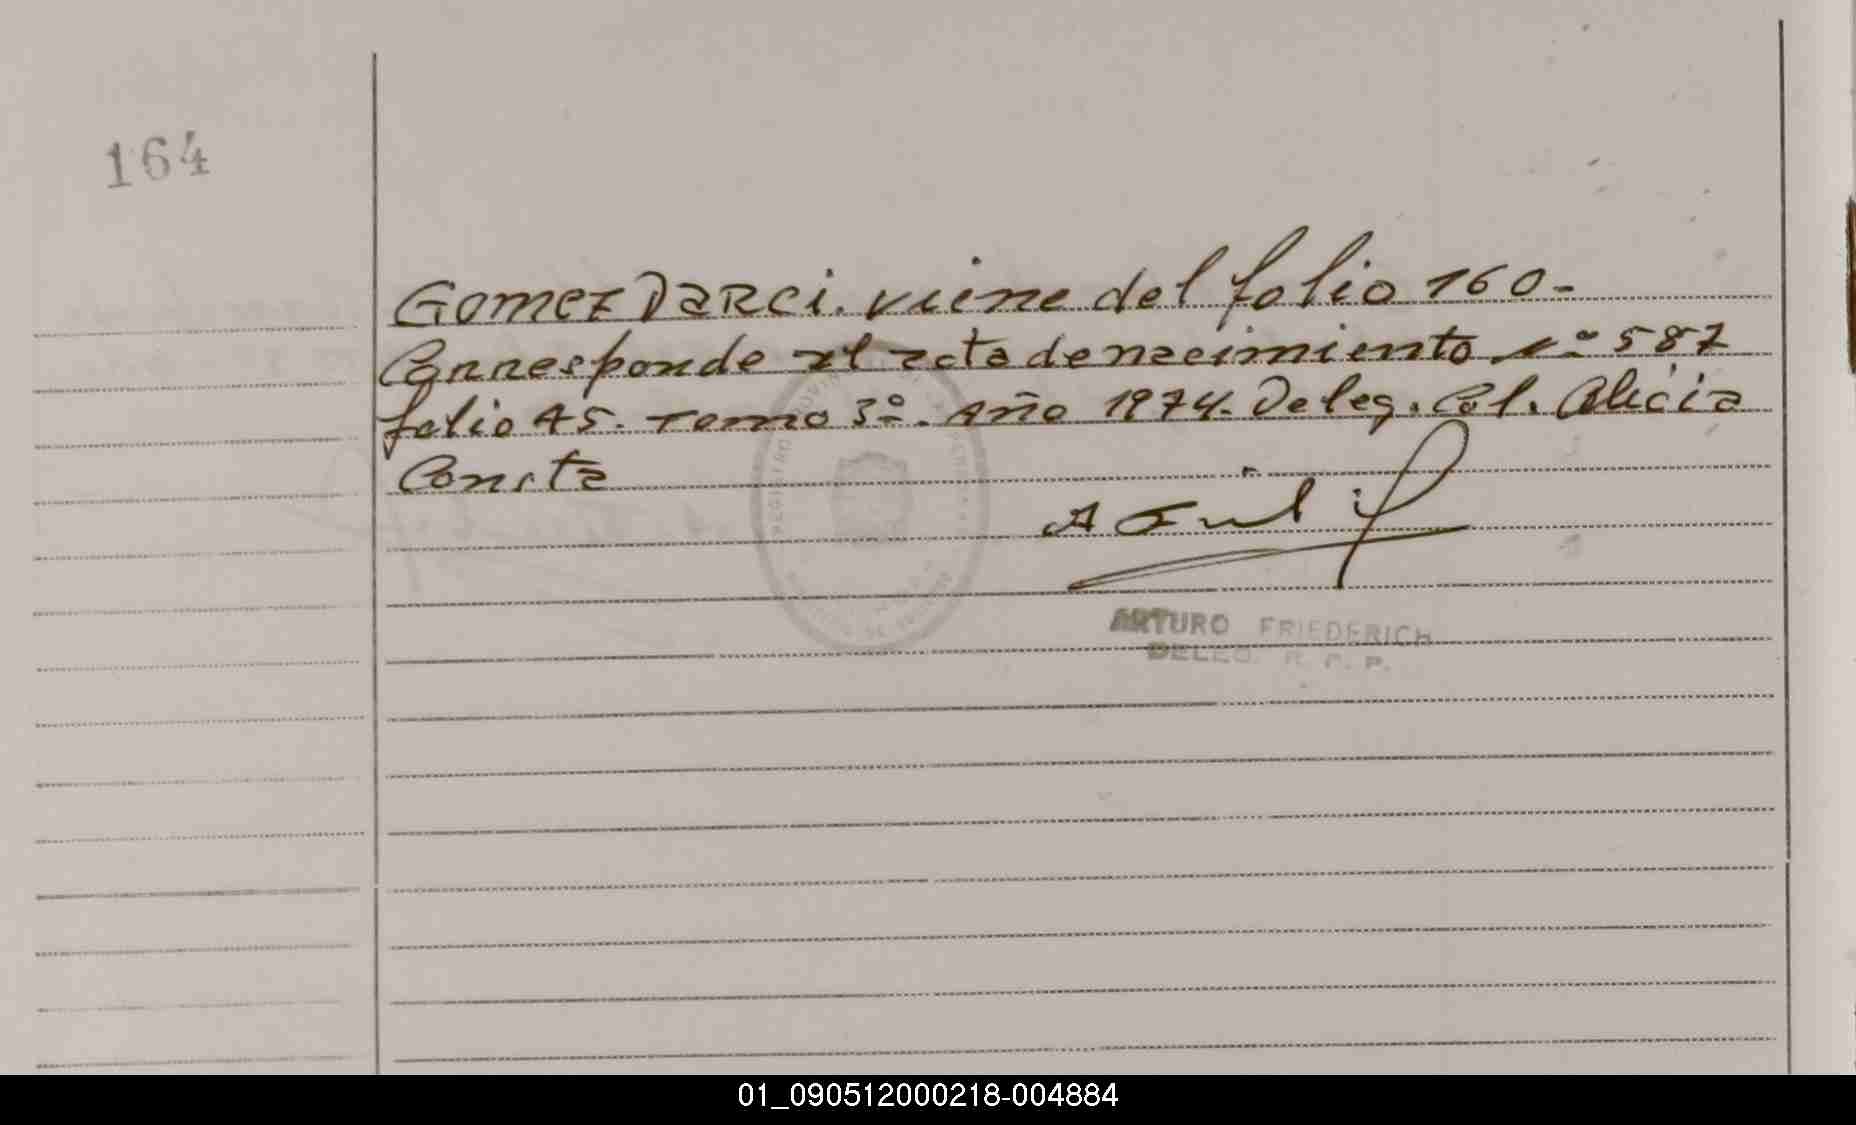 164
Gomez Darci. viene del folio 160-
Corresponde al acta de nacimiento nº 587
folio 45. Tomo 3º. Año 1974. Deleg. Col. Alicia
Consta
ARTURO FRIEDERICH
DELEG. R. P. P.
01_090512000218-004884